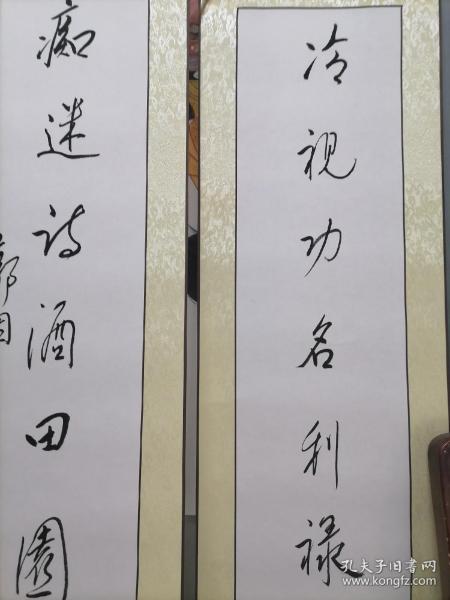 冷视功名利禄
痴迷诗酒田园
孔夫子旧书网
www.kongfz.com